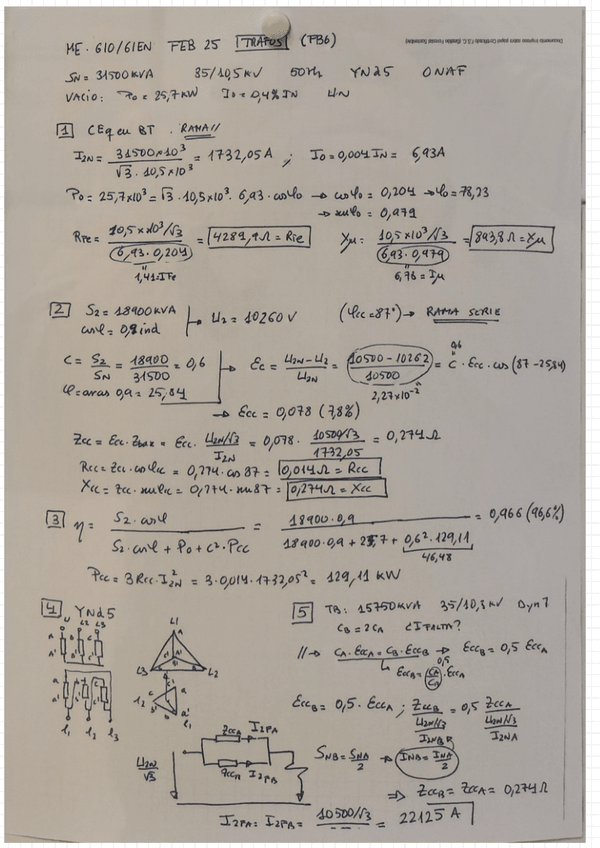 ME-610/61EN FEB 25 TRAFOS (FB6)
Documento impreso sobre papel Certificado F.S.C. (Gestión Forestal Sostenible)
SN = 31500 KVA 35/10,5 KV 50Hz YNd5 ONAF
VACIO: Po = 25,7 KW Io = 0,4% IN UN
1 CEq en BT. RAMA //
I2N = 31500×10³ / √3 · 10,5×10³ = 1732,05 A ; Io = 0,004 IN = 6,93A
Po = 25,7×10³ = √3 · 10,5×10³ · 6,93 · cosφo → cosφo = 0,204 → φo = 78,23
→ senφo = 0,979
RFe = 10,5×10³/√3 / 6,93 · 0,204 = 4289,9Ω = RFe Xμ = 10,5×10³/√3 / 6,93 · 0,979 = 893,8Ω = Xμ
1,41 = IFe 6,78 = Iμ
2 S2 = 18900 KVA
cosφ = 0,9 ind → U2 = 10260 V (φcc = 87°) → RAMA SERIE
C = S2/SN = 18900/31500 = 0,6 → εc = U2N - U2 / U2N = 10500 - 10262 / 10500 = C · εcc · cos (87 - 25,84)
0,6
φ = arcos 0,9 = 25,84 2,27×10⁻²
→ εcc = 0,078 (7,8%)
Zcc = εcc · Zbase = εcc · U2N/√3 / I2N = 0,078 · 10500/√3 / 1732,05 = 0,274Ω
Rcc = Zcc · cosφcc = 0,274 · cos 87 = 0,014Ω = Rcc
Xcc = Zcc · senφcc = 0,274 · sen 87 = 0,274Ω = Xcc
3 η = S2 · cosφ / S2 · cosφ + Po + C² · Pcc = 18900 · 0,9 / 18900 · 0,9 + 25,7 + 0,6² · 129,11 = 0,966 (96,6%)
46,48
Pcc = 3Rcc · I2N² = 3 · 0,014 · 1732,05² = 129,11 KW
4 YNd5
L2 L3
L1
L3 L2
l1 l2 l3
5 TB: 15750KVA 35/10,5 KV Dyn7
CB = 2CA ¿IFALTA?
// → CA · εccA = CB · εccB → εccB = 0,5 εccA
εccB = CA/CB · εccA
0,5
εccB = 0,5 · εccA ; ZccB / U2N/√3 / I2NB = 0,5 ZccA / U2N/√3 / I2NA
U2N/√3 ZccA I2FA
ZccB I2FB
SNB = SNA/2 → INB = INA/2
⇒ ZccB = ZccA = 0,274Ω
I2FA = I2FB = 10500/√3 = 22125 A